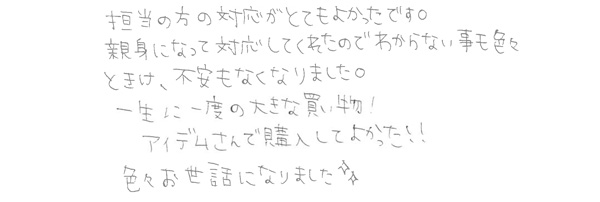 担当の方の対応がとてもよかったです。
親身になって対応してくれたのでわからない事も色々
ときけ、不安もなくなりました。
一生に一度の大きな買い物!
アイデムさんで購入してよかった!!
色々お世話になりました